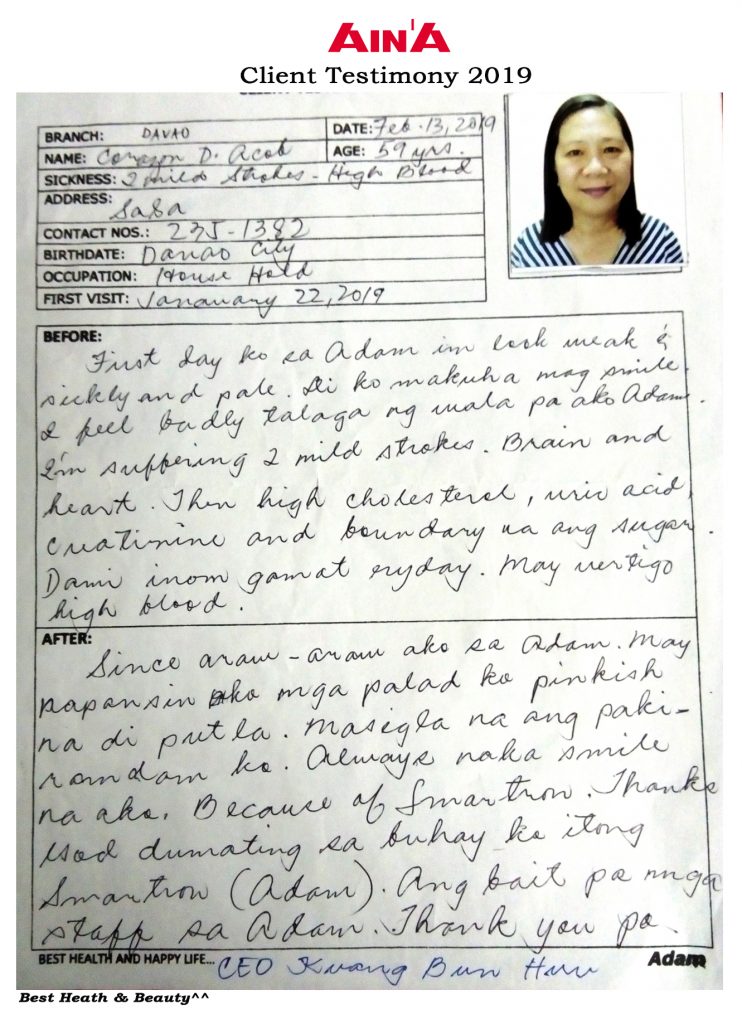 AIN'A
Client Testimony 2019
BRANCH: DAVAO
DATE: Feb. 13, 2019
NAME: Corazon D. Acob
AGE: 59 yrs.
SICKNESS: 2 mild strokes - High Blood
ADDRESS: SaSa
CONTACT NOS.: 235-1382
BIRTHDATE: Davao City
OCCUPATION: House Hold
FIRST VISIT: Janauary 22, 2019
BEFORE:
First day ko sa Adam im look weak &
sickly and pale. Di ko makuha mag smile.
I feel badly talaga ng wala pa ako Adam.
I'm suffering 2 mild strokes. Brain and
heart. Then high cholesterol, uric acid,
creatinine and boundary na ang sugar.
Dami inom gamat eryday. May vertigo
high blood.
AFTER:
Since araw-araw ako sa Adam. May
napansin ako mga palad ko pinkish
na di putla. Masigla na ang paki-
ramdam ko. Always naka smile
na ako. Because of Smartron. Thanks
God dumating sa buhay ko itong
Smartron (Adam). Ang bait pa mga
staff sa Adam. Thank you po.
BEST HEALTH AND HAPPY LIFE... CEO Kwang Bun Huu
Adam
Best Heath & Beauty^^